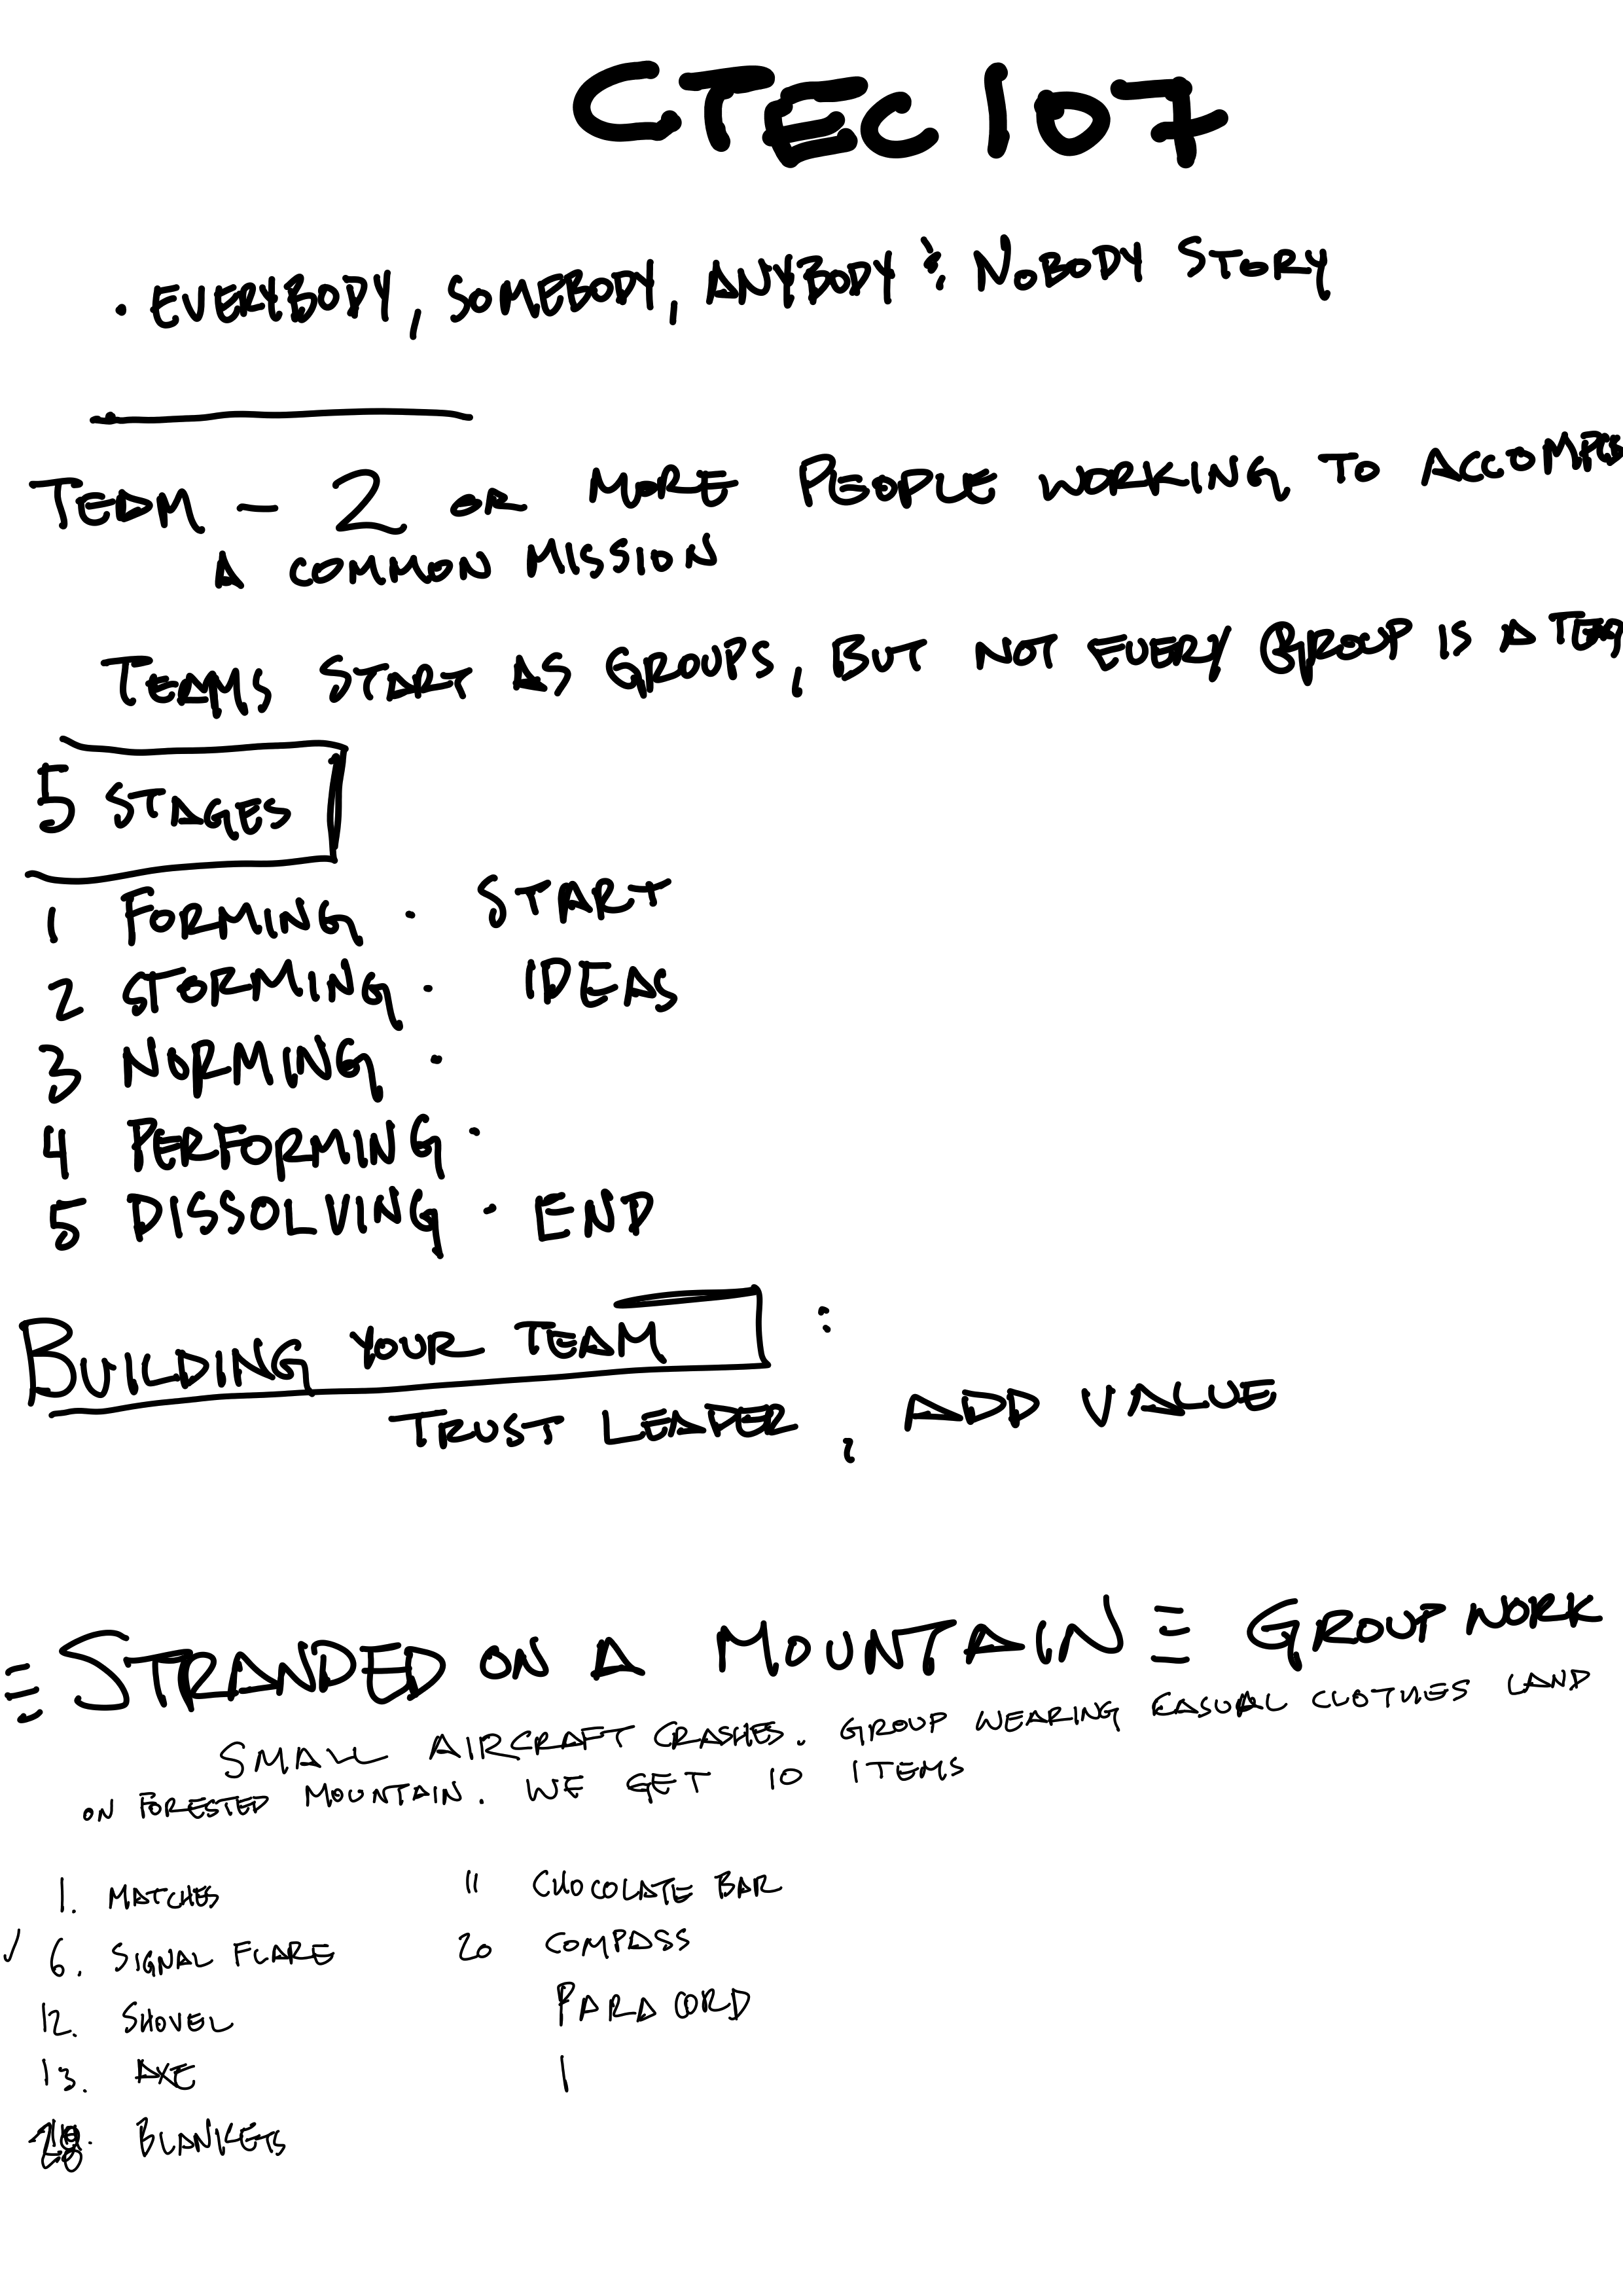 CTEC 107
· EVERYBODY, SOMEBODY, ANYBODY & NOBODY STORY
TEAM - 2 OR MORE PEOPLE WORKING TO
A COMMON MISSION
TEAMS START AS GROUPS, BUT NOT EVERY GROUP IS A
5 STAGES
1 FORMING · START
2 STORMING · IDEAS
3 NORMING ·
4 PERFORMING ·
5 DISSOLVING · END
BUILDING YOUR TEAM :
TRUST LEADER, ADD VALUE
STRANDED ON A MOUNTAIN GROUP WORK
SMALL AIRCRAFT CRASHES. GROUP WEARING CASUAL CLOTHES LAND
ON FORESTED MOUNTAIN. WE GET 10 ITEMS
1. MATCHES
✓ 6. SIGNAL FLARE
12. SHOVEL
13. AXE
BLANKETS
11 CHOCOLATE BAR
20 COMPASS
PARA CORD
1